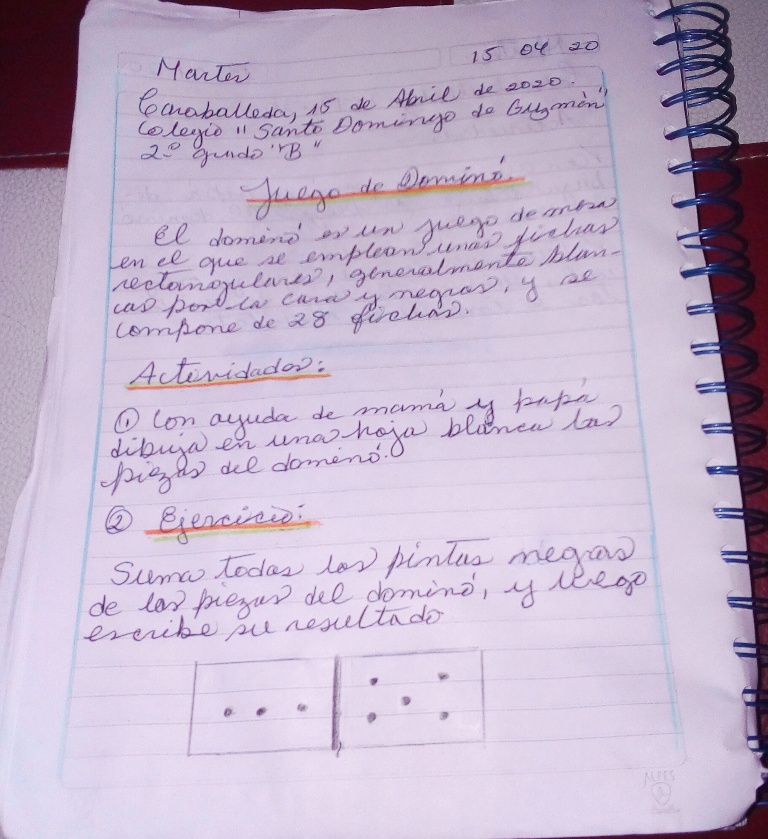 Martes
15 04 20
Caraballeda, 15 de Abril de 2020.
Colegio "Santo Domingo de Guzmán"
2º grado "B"
Juego de Dominó.
El dominó es un juego de mesa
en el que se emplean unas fichas
rectangulares, generalmente blan-
cas por la cara y negras, y se
compone de 28 fichas.
Actividades:
① Con ayuda de mamá y papá
dibuja en una hoja blanca las
piezas del dominó.
② Ejercicio:
Suma todas las pintas negras
de las piezas del dominó, y luego
escribe su resultado